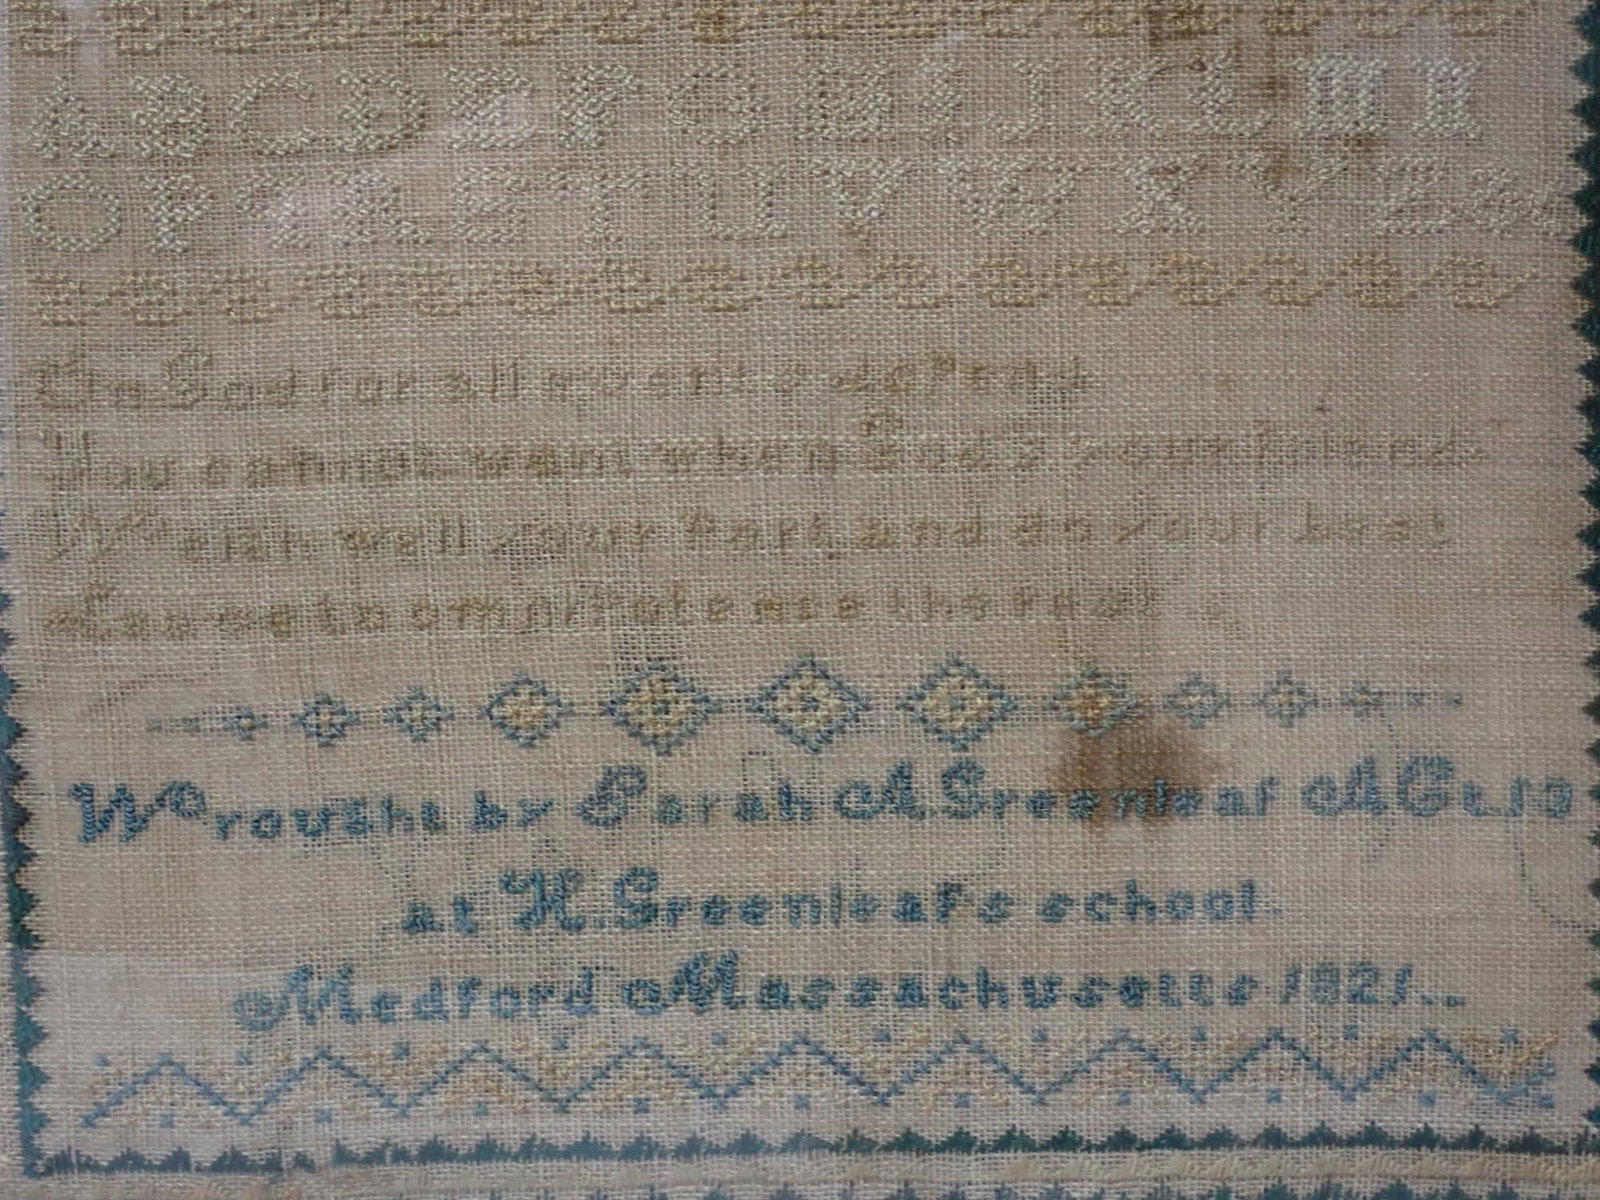 A B C D E F G H I J K L M N
O P Q R S T U V W X Y Z &
On God for all events depend
You cannot want when God's your friend.
Weigh well your part and do your best
Leave to omnipotence the rest.
Wrought by Sarah A. Greenleaf Æt. 10
at H. Greenleafs school.
Medford Massachusetts 1821..